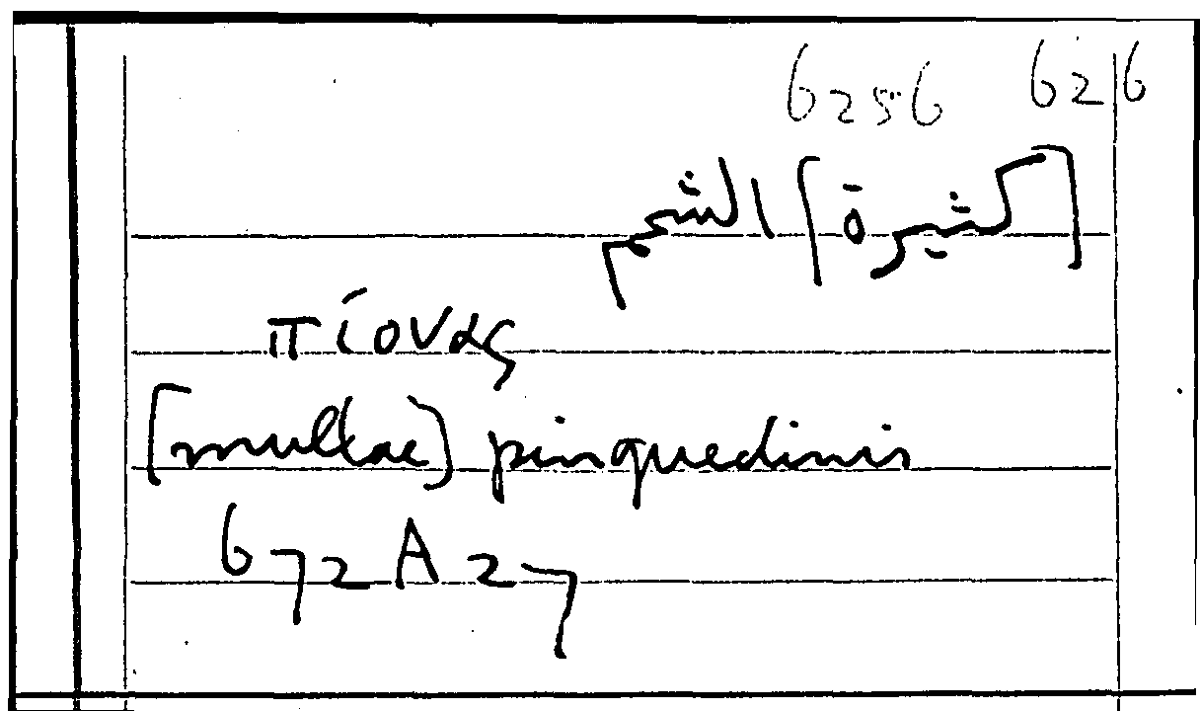 6256 626
[كثيرة] الشحم
πίονας
[multae] pinguedinis
672 A 27